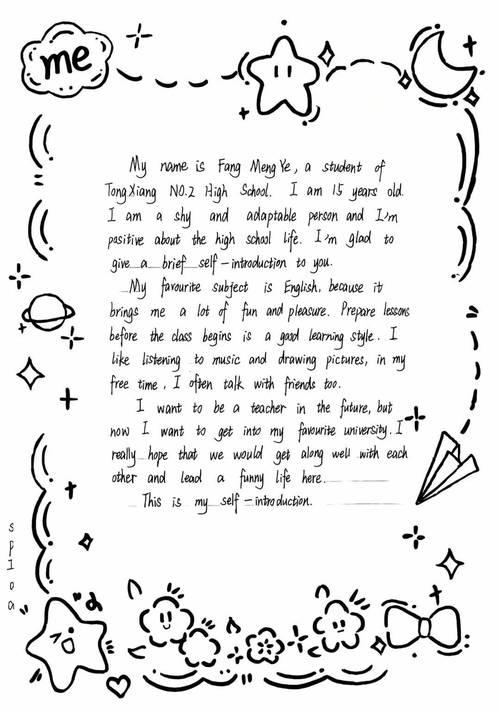 me
My name is Fang Meng Ye, a student of
TongXiang NO.2 High School. I am 15 years old.
I am a shy and adaptable person and I'm
positive about the high school life. I'm glad to
give a brief self-introduction to you.
My favourite subject is English, because it
brings me a lot of fun and pleasure. Prepare lessons
before the class begins is a good learning style. I
like listening to music and drawing pictures, in my
free time, I often talk with friends too.
I want to be a teacher in the future, but
now I want to get into my favourite university. I
really hope that we would get along well with each
other and lead a funny life here.
This is my self-introduction.